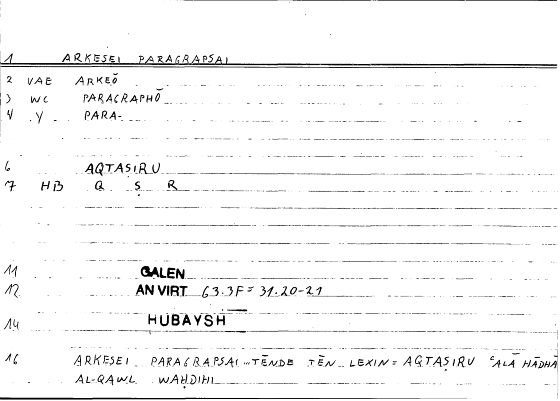 1 ARKESEI PARAGRAPSAI
2 VAE ARKEŌ
3 WC PARAGRAPHŌ
4 Y PARA-
6 AQTAṢIRU
7 HB Q Ṣ R
11 GALEN
12 AN VIRT 63.3F = 31.20-21
14 HUBAYSH
16 ARKESEI PARAGRAPSAI TĒNDE TĒN LEXIN = AQTAṢIRU ʿALĀ HĀDHĀ
AL-QAWL WAḤDIHI